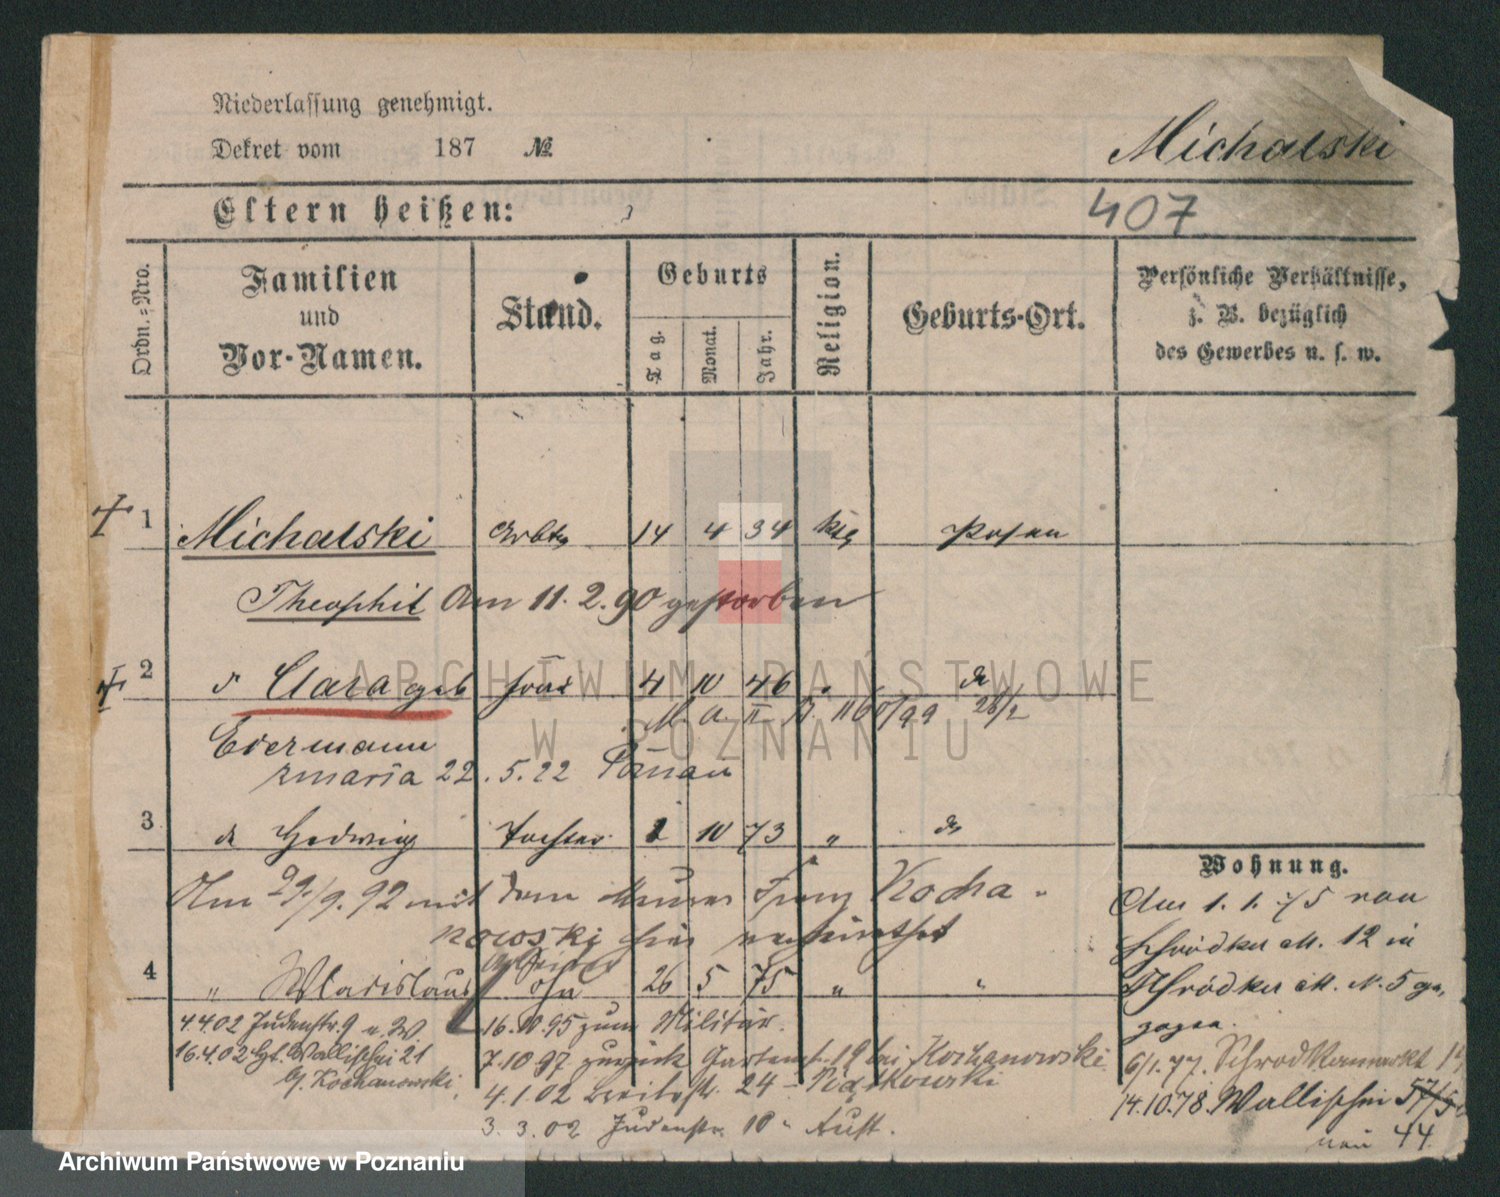 Niederlassung genehmigt.
Dekret vom 187 №
Michalski
Eltern heißen:
407
Ordn.=Nro.
Familien und Vor-Namen.
Stand.
Geburts
Tag.
Monat.
Jahr.
Religion.
Geburts-Ort.
Persönliche Verhältnisse, z. B. bezüglich des Gewerbes u. s. w.
1 Michalski 14 4 34 ktg Posen
Theophil Am 11. 2. 90 gestorben
2 Clara geb Frau 4 10 46
Eiermann
22. 5. 22
3 Hedwig Tochter 2 10 73 "
Am 29./9. 92 mit dem Maurer Franz Kocha-
nowski hier verheirathet
Arbeiter
4 " Wladislaus Sohn 26 5 75 " "
4.4.02 Judenstr. 9
16.4.02 Gr. Wallischei 21
b/. Kochanowski.
16.10.95 zum Militär.
7.10 97 zurück Gartenstr. 19 bei Kochanowski
4.1.02 Breitestr. 24 - Piątkowski
3. 3. 02 Judenstr. 10
Wohnung.
Am 1. 1. 75 von
Schrodker M. 12 in
Schrodker M. N. 5 ge-
zogen.
6/1. 77. Schrodkermarkt
14.10.78. Wallischei
neu 44
ARCHIWUM PAŃSTWOWE
W POZNANIU
Archiwum Państwowe w Poznaniu